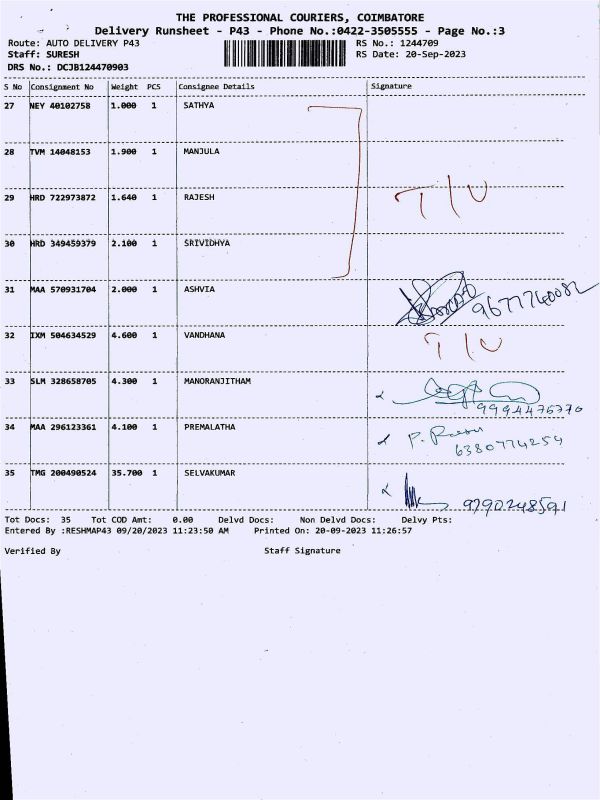 THE PROFESSIONAL COURIERS, COIMBATORE
Delivery Runsheet - P43 - Phone No.:0422-3505555 - Page No.:3
Route: AUTO DELIVERY P43 RS No.: 1244709
Staff: SURESH RS Date: 20-Sep-2023
DRS No.: DCJB124470903
S No Consignment No Weight PCS Consignee Details Signature
27 NEY 40102758 1.000 1 SATHYA
28 TVM 14048153 1.900 1 MANJULA
29 HRD 722973872 1.640 1 RAJESH T/U
30 HRD 349459379 2.100 1 SRIVIDHYA
31 MAA 570931704 2.000 1 ASHVIA 9677740082
32 IXM 504634529 4.600 1 VANDHANA T/U
33 SLM 328658705 4.300 1 MANORANJITHAM 9994476770
34 MAA 296123361 4.100 1 PREMALATHA 6380774254
35 TMG 200490524 35.700 1 SELVAKUMAR 9790248591
Tot Docs: 35 Tot COD Amt: 0.00 Delvd Docs: Non Delvd Docs: Delvy Pts:
Entered By :RESHMAP43 09/20/2023 11:23:50 AM Printed On: 20-09-2023 11:26:57
Verified By Staff Signature